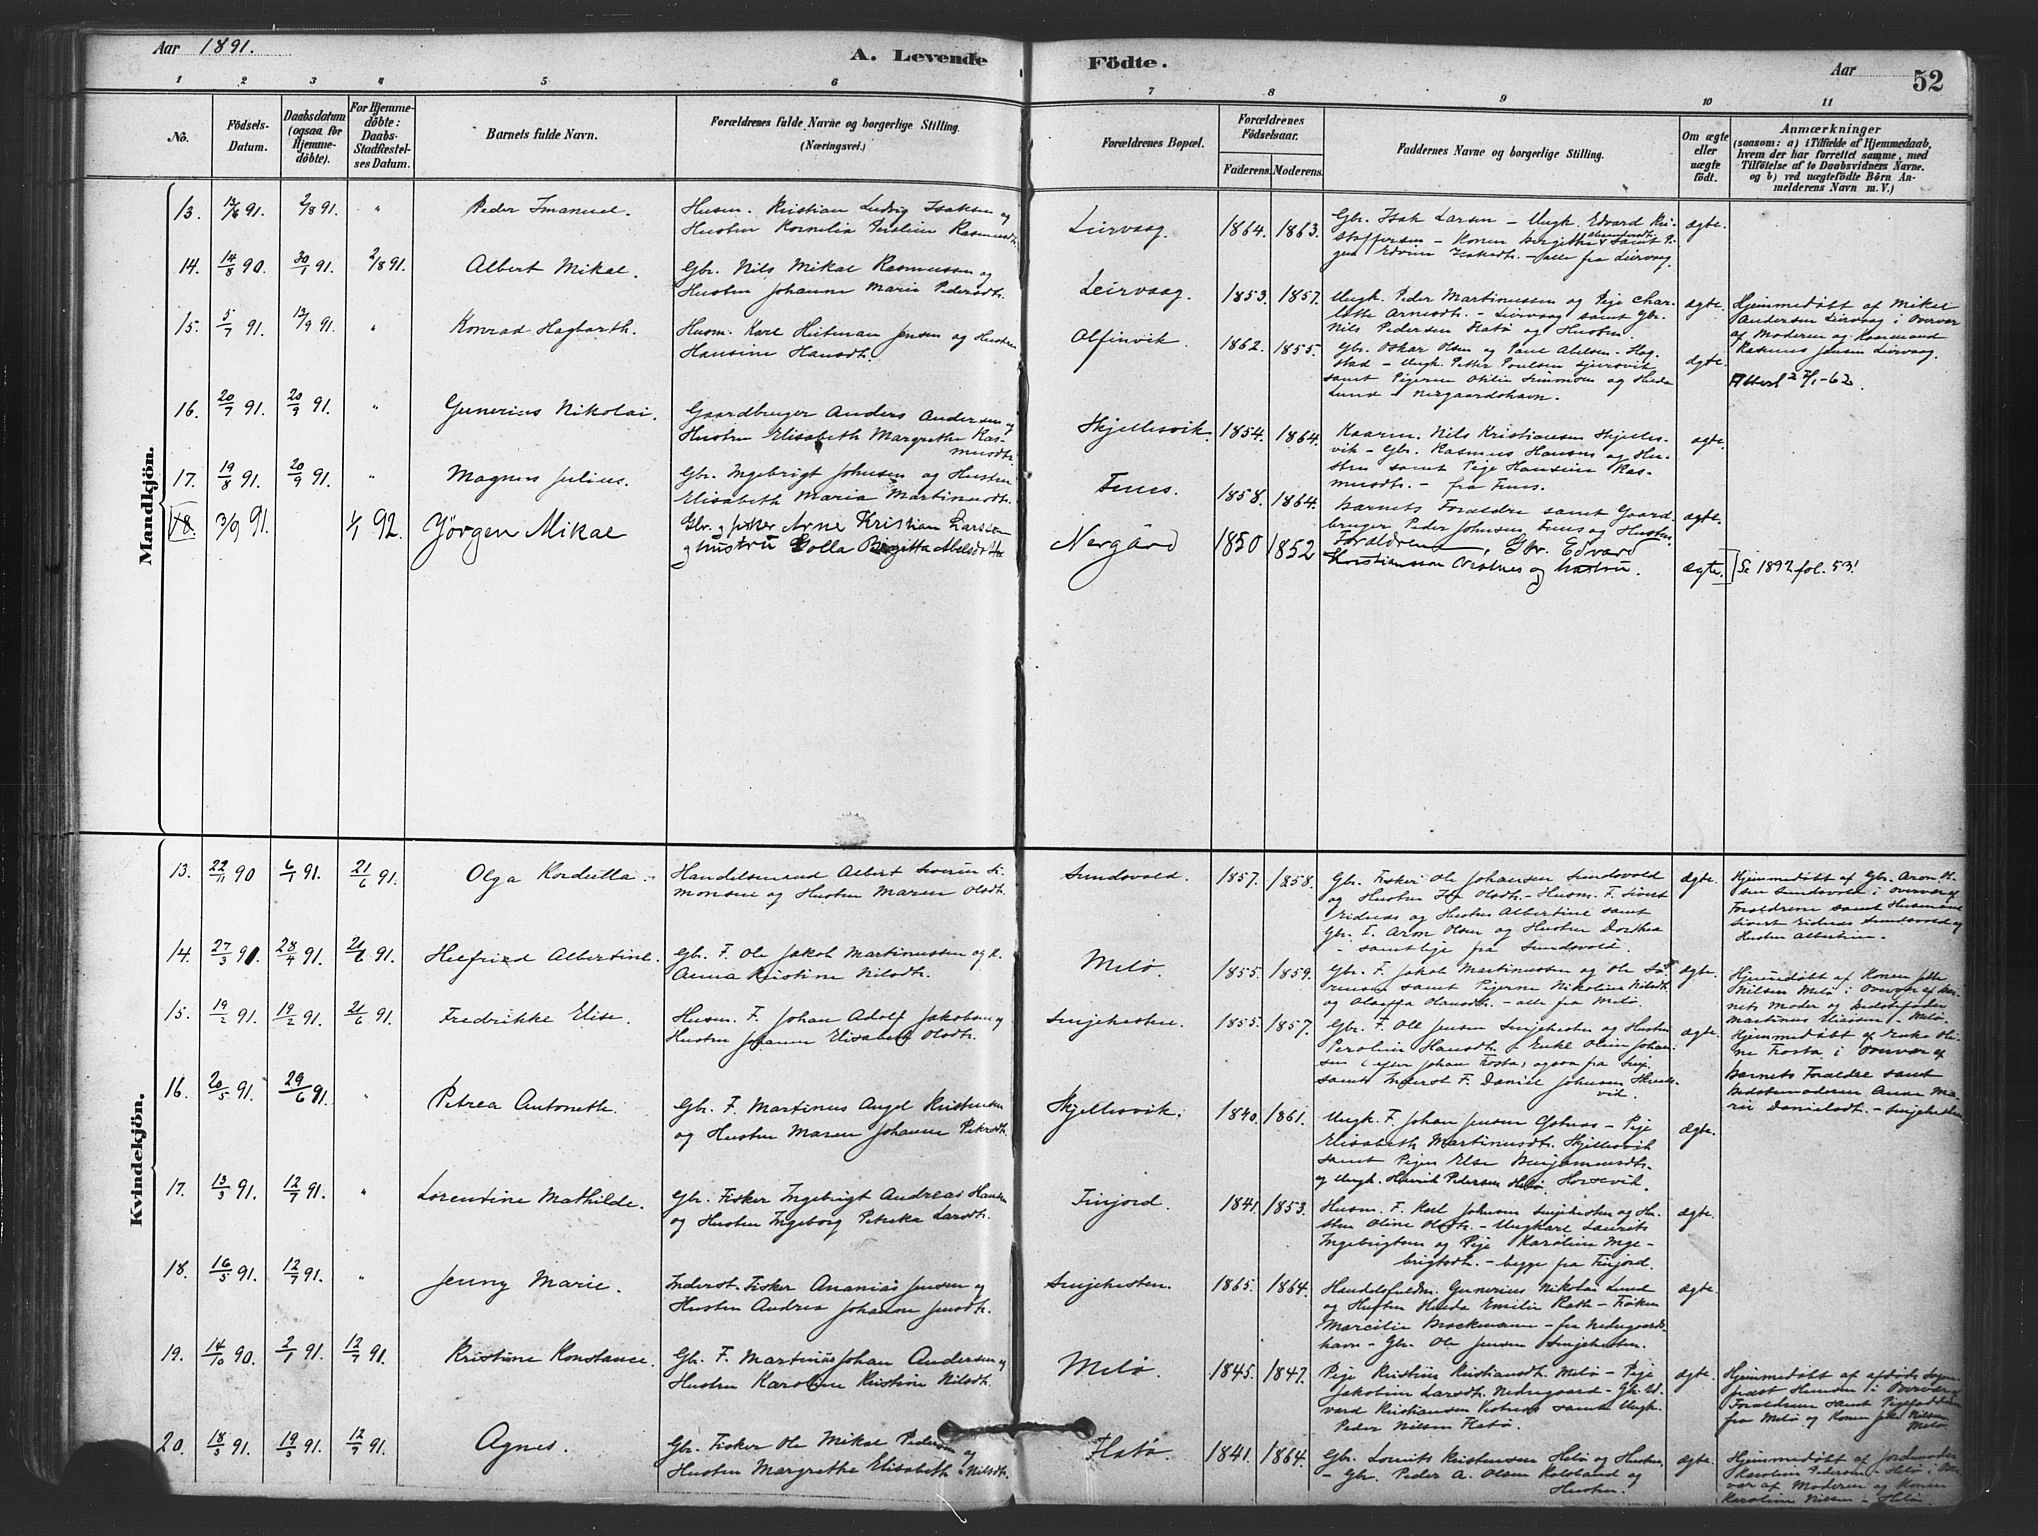 Aar 1891.
A. Levende Födte.
Aar
52
1 2 3 4 5 6 7 8 9 10 11
No.
Födsels-
Datum.
Daabsdatum
(ogsaa for
Hjemme-
döbte).
For Hjemme-
döbte:
Daabs-
Stadfæstel-
ses Datum.
Barnets fulde Navn.
Forældrenes fulde Navne og borgerlige Stilling.
(Næringsvei.)
Forældrenes Bopæl.
Forældrenes
Födselsaar.
Faderens. Moderens.
Faddernes Navne og borgerlige Stilling.
Om ægte
eller
uægte
födt.
Anmærkninger
(saasom: a) i Tilfælde af Hjemmedaab,
hvem der har forrettet samme, med
Tilföielse af to Daabsvidners Navne.
og b) ved uægtefödte Börn An-
melderens Navn m. V.)
Mandkjön.
13. 13/6 91. 2/8 91. " Peder Imanuel. Husm. Kristian Ludvig Isaksen og
Hustru Kornelia Rasmusdt.
Leirvaag. 1864. 1863. Gbr. Isak Larsen – Ungk. Edvard Kri-
stoffersen – Konen Bergitte samt P-
gen Edvine Isaksdt. – alle fra Leirvaag.
ægte.
14. 14/8 90. 30/1 91. 2/8 91. Albert Mikal. Gbr. Nils Mikal Rasmussen og
Hustru Johanne Marie Pedersdt.
Leirvaag. 1853. 1857. Ungk. Peder Martinussen og Pige Char-
lotte Arnesdt. – Leirvaag samt Gbr.
Nils Pedersen Flatö og Hustru.
ægte. Hjemmedöbt af Mikal
Andersen Leirvaag i Overvær
af Moderen og Kaarmand
Rasmus Jensen Leirvaag.
15. 5/7 91. 13/9 91. " Konrad Hagbarth. Husm. Karl Hitman Jensen og Hustru
Hansine Hansdt.
Olfinvik. 1862. 1855. Gbr. Oskar Olsen og Paul Abelsen Hog-
stad – Ungk. Petter Poulsen
samt Pigerne Otilie Simonsen og Hilda
Lund Nergaardshavn.
ægte. Attest 2 7/1-62.
16. 20/7 91. 20/9 91. " Gunerius Nikolai. Gaardbruger Anders Andersen og
Hustru Elisabeth Margrethe Ras-
musdt.
Skjellesvik. 1854. 1864. Kaarm. Nils Kristiansen Skjelles-
vik – Gbr. Rasmus Hansen og Hu-
stru samt Pige Hansine Ras-
musdt. – fra Funes.
ægte.
17. 19/8 91. 20/9 91. " Magnus Julius. Gbr. Ingebrigt Johnsen og Hustru
Elisabeth Maria Martinusdt.
Funes. 1858. 1864. Barnets Foraldre samt Gaard-
bruger Peder Johnsen Funes og Hustru.
ægte.
18. 3/9 91. 1/1 92. Jörgen Mikal Gbr. og fisker Arne Kristian Larssen
og hustru Golla Birgitta Abelsdatter
Nergård 1850 1852 Foraldrene, Gbr. Edvard
Kristianssen Vestnes og hustru.
ægte. Se 1892 fol. 53!
Kvindekjön.
13. 22/11 90 6/1 91. 21/6 91. Olga Kordulla. Handelsmand Albert Severin Si-
monsen og Hustru Maren Olsdt.
Sundsvold. 1857. 1858. Gbr. Fisker Ole Johansen Sundsvold
og Hustru Olsdt. – Husm. F. Sivert
Eidnes og Hustru Albertine samt
Gbr. F. Aron Olsen og Hustru Dorthea
– samtlige fra Sundsvold.
ægte. Hjemmedöbt af Gbr. Aron Ol-
sen Sundsvold i Overvær af
Foraldrene samt Husmand
Sivert Eidnes Sundsvold og
Hustru Albertine.
14. 27/3 91. 28/4 91. 21/6 91. Helfried Albertine. Gbr. F. Ole Jakob Martinussen og H.
Anna Kristine Nilsdt.
Melö. 1855. 1859. Gbr. F. Jakob Martinussen og Ole Sö-
rensen samt Pigerne Nikoline Nilsdt.
og Oleffa Hansdt. – alle fra Melö.
ægte. Hjemmedöbt af Konen
Nilsen Melö i Overvær af Bar-
nets Moder og Bedstefader
Martinus Eliassen – Melö.
15. 19/2 91. 19/2 91. 21/6 91. Fredrikke Elise. Husm. F. Johan Adolf Jakobsen og
Hustru Johanne Elisabeth Olsdt.
Singehesten. 1855. 1857. Gbr. F. Ole Jensen Singehesten og Hustru
Peroline Hansdt. Enke Oline Johan-
sen (efter Johan Frosta) ogsaa fra Sing.
samt Inderst F. Daniel Johnsen
vik.
ægte. Hjemmedöbt af Enke Oli-
ne Frosta i Overvær af
Barnets Foraldre samt
Bedstemoderen Anne Ma-
rie Danielsdt. – Singehesten.
16. 20/5 91. 29/6 91. " Petrea Antonette. Gbr. F. Martinus Angel Kristensen
og Hustru Maren Johanne Pedersdt.
Skjellesvik. 1840. 1861. Ungk. F. Johan Jensen – Pige
Elisabeth Martinusdt. Skjellesvik
samt Pigen Else Benjaminsdt.
og Ungk. Henrik Pedersen Horsevik.
ægte.
17. 13/3 91. 12/7 91. " Lorentine Mathilde. Gbr. Fisker Ingebrigt Andreas Hansen
og Hustru Ingeborg Petrika Larsdt.
Finjord. 1841. 1853. Husm. F. Karl Johnsen Singehesten og Hu-
stru Oline Olsdt. – Ungkarl Laurits
Ingebrigtsen og Pige Karoline Inge-
brigtsdt. – begge fra Finjord.
ægte.
18. 16/5 91. 12/7 91. " Jenny Marie. Inderst Fisker Ananias Jensen og
Hustru Andrea Johanne Jensdt.
Singehesten. 1865. 1864. Handelsfuldm. Gunerius Nikolai Lund
og Hustru Hilda Emilie Rath – Fröken
Marcilie Brockmann – fra Nedregaards-
havn – Gbr. Ole Jensen Singehesten.
ægte.
19. 14/10 90. 2/1 91. 12/7 91. Kristine Konstance. Gbr. F. Martinus Johan Andersen og
Hustru Karoline Kristine Nilsdt.
Melö. 1845. 1847. Pige Kristine Kristiansdt. Melö – Pige
Jakobine Larsdt. Nedregaard – Gbr. Ed-
vard Kristiansen Vestnes samt Ungk.
Peder Nilsen Flatö.
ægte. Hjemmedöbt af afdöde Sogne-
præst Hansen i Overvær af
Foraldrene samt
fra Melö og Konen Nilsen
Melö.
20. 18/3 91. 19/3 91. 12/7 91. Agnes. Gbr. Fisker Ole Mikal Pedersen og
Hustru Margrethe Elisabeth Nilsdt.
Flatö. 1841. 1864. Gbr. Lorents Kristensen Helö og Hustru,
– Gbr. Peder A. Olsen og
Hustru.
ægte. Hjemmedöbt af Jordmoder
Karoline Pedersen – Helö i Over-
vær af Moderen og Konen
Karoline Nilsen – Helö.